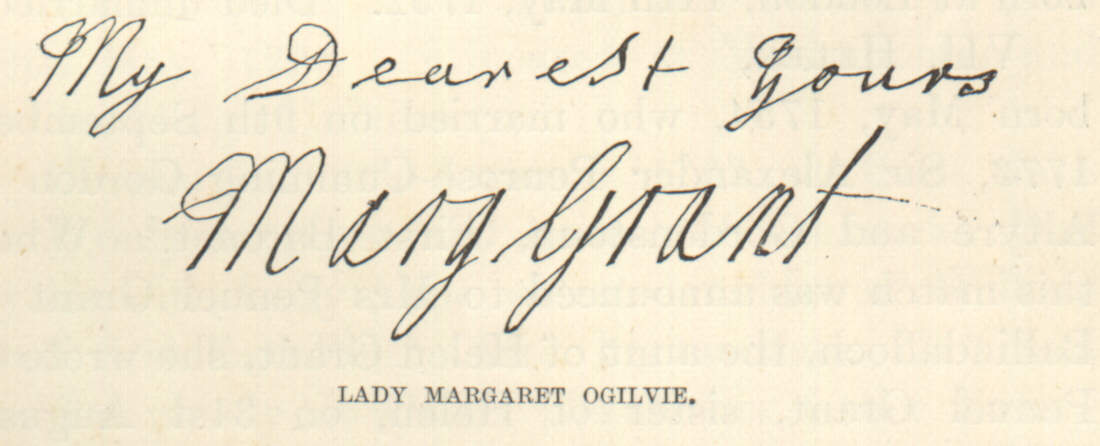 My Dearest Yours
Marg Grant
LADY MARGARET OGILVIE.